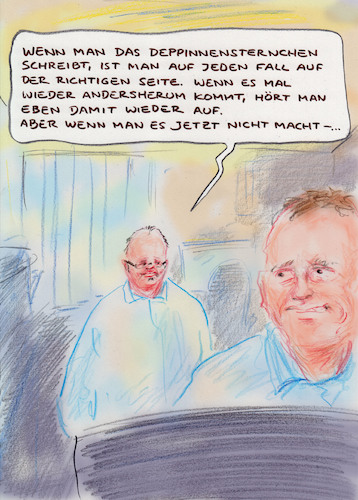 WENN MAN DAS DEPPINNENSTERNCHEN
SCHREIBT, IST MAN AUF JEDEN FALL AUF
DER RICHTIGEN SEITE. WENN ES MAL
WIEDER ANDERSHERUM KOMMT, HÖRT MAN
EBEN DAMIT WIEDER AUF.
ABER WENN MAN ES JETZT NICHT MACHT –...